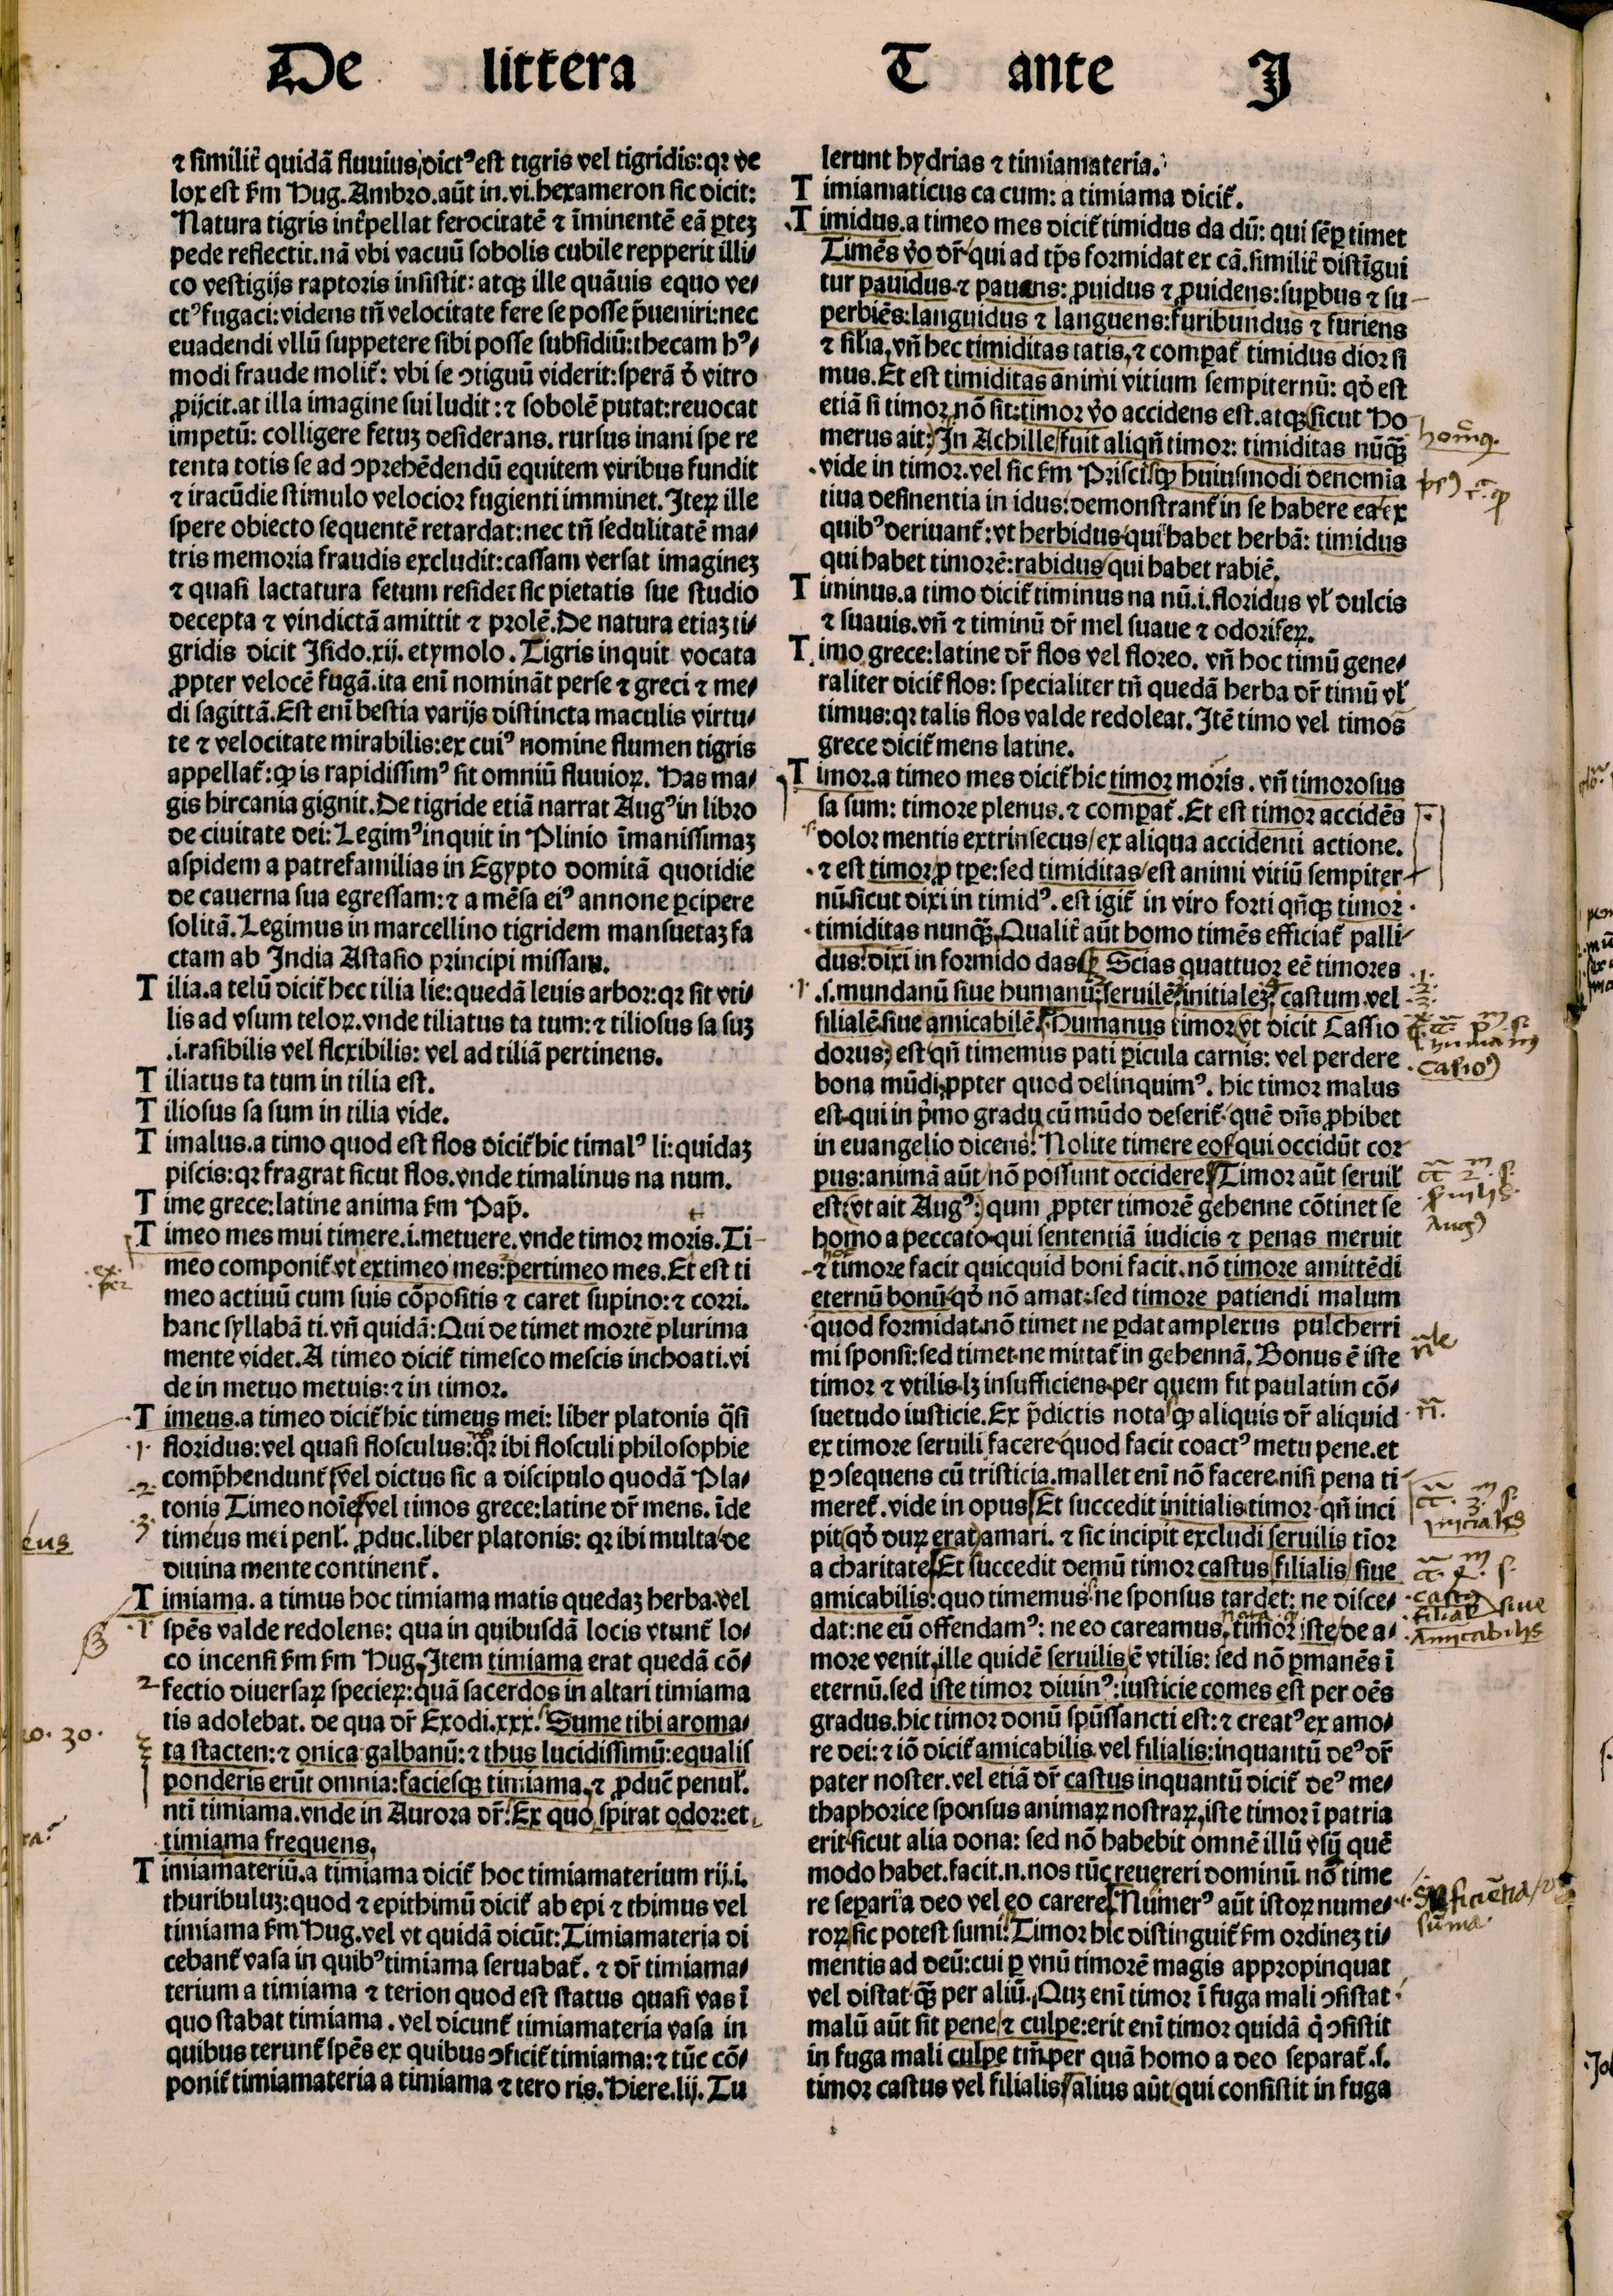 De littera T ante I
⁊ similit̃ quidã fluuius dictꝰ est tigris vel tigridis: qꝛ ve
lox est ẜm Hug. Ambro. aũt in .vi. hexameron sic dicit:
Natura tigris int̃pellat ferocitatẽ ⁊ ĩminentẽ eã ꝑteꝫ
pede reflectit. nã vbi vacuũ sobolis cubile repperit illi⸗
co vestigijs raptoris insistit: atqꝫ ille quãuis equo ve⸗
ctꝰ fugaci: videns tñ velocitate fere se posse p̃ueniri: nec
euadendi vllũ suppetere sibi posse subsidiũ: thecam hꝰ⸗
modi fraude molit̃: vbi se ↄtiguũ viderit: sperã ð vitro
ꝓijcit. at illa imagine sui ludit: ⁊ sobolẽ putat: reuocat
impetũ: colligere fetuꝫ desiderans. rursus inani spe re
tenta totis se ad ↄprehẽdendũ equitem viribus fundit
⁊ iracũdie stimulo velocior fugienti imminet. Iteꝝ ille
spere obiecto sequentẽ retardat: nec tñ sedulitatẽ ma⸗
tris memoria fraudis excludit: cassam versat imagineꝫ
⁊ quasi lactatura fetum residet sic pietatis sue studio
decepta ⁊ vindictã amittit ⁊ prolẽ. De natura etiaꝫ ti⸗
gridis dicit Isido. xij. etymolo. Tigris inquit vocata
ꝓpter velocẽ fugã. ita enĩ nominãt perse ⁊ greci ⁊ me⸗
di sagittã. Est enĩ bestia varijs distincta maculis virtu⸗
te ⁊ velocitate mirabilis: ex cuiꝰ nomine flumen tigris
appellat̃: ꝙ is rapidissimꝰ sit omniũ fluuioꝝ. Has ma⸗
gis hircania gignit. De tigride etiã narrat Augꝰ in libro
de ciuitate dei: Legimꝰ inquit in Plinio ĩmanissimaꝫ
aspidem a patrefamilias in Egypto domitã quotidie
de cauerna sua egressam: ⁊ a mẽsa eiꝰ annone ꝑcipere
solitã. Legimus in marcellino tigridem mansuetaꝫ fa
ctam ab India Astasio principi missam.
Tilia. a telũ dicit̃ hec tilia lie: quedã leuis arbor: qꝛ sit vti⸗
lis ad vsum teloꝝ. vnde tiliatus ta tum: ⁊ tiliosus sa suꝫ
.i. rasibilis vel flexibilis: vel ad tiliã pertinens.
Tiliatus ta tum in tilia est.
Tiliosus sa sum in tilia vide.
Timalus. a timo quod est flos dicit̃ hic timalꝰ li: quidaꝫ
piscis: qꝛ fragrat sicut flos. vnde timalinus na num.
Time grece: latine anima ẜm Pap̃.
Timeo mes mui timere .i. metuere. vnde timor moris. Ti
meo componit̃ vt extimeo mes: pertimeo mes. Et est ti
meo actiuũ cum suis cõpositis ⁊ caret supino: ⁊ corri.
hanc syllabã ti. vñ quidã: Qui de timet morte plurima
mente videt. A timeo dicit̃ timesco mescis inchoati. vi
de in metuo metuis: ⁊ in timor.
Timeus. a timeo dicit̃ hic timeus mei: liber platonis q̃si
floridus: vel quasi flosculus: qꝛ ibi flosculi philosophie
comp̃hendunt̃ vel dictus sic a discipulo quodã Pla⸗
tonis Timeo noĩe vel timos grece: latine dr̃ mens. ĩde
timeus mei penl̃. ꝓduc. liber platonis: qꝛ ibi multa de
diuina mente continent̃.
Timiama. a timus hoc timiama matis quedaꝫ herba. vel
spẽs valde redolens: qua in quibusdã locis vtunt̃ lo⸗
co incensi ẜm ẜm Hug. Item timiama erat quedã cõ⸗
fectio diuersaꝝ specieꝝ: quã sacerdos in altari timiama
tis adolebat. de qua dr̃ Exodi .xxx. Sume tibi aroma⸗
ta stacten: ⁊ onica galbanũ: ⁊ thus lucidissimũ: equalis
ponderis erũt omnia: faciesqꝫ timiama, ⁊ ꝓduc̃ penul̃.
ntĩ timiama. vnde in Aurora dr̃: Ex quo spirat odor: et
timiama frequens.
Timiamateriũ. a timiama dicit̃ hoc timiamaterium rij .i.
thuribuluꝫ: quod ⁊ epithimũ dicit̃ ab epi ⁊ thimus vel
timiama ẜm Hug. vel vt quidã dicũt: Timiamateria di
cebant̃ vasa in quibꝰ timiama seruabat̃. ⁊ dr̃ timiama⸗
terium a timiama ⁊ terion quod est status quasi vas ĩ
quo stabat timiama. vel dicunt̃ timiamateria vasa in
quibus terunt̃ spẽs ex quibus ↄficit̃ timiama: ⁊ tũc cõ⸗
ponit̃ timiamateria a timiama ⁊ tero ris. Hiere. lij. Tu
lerunt hydrias ⁊ timiamateria.
Timiamaticus ca cum: a timiama dicit̃.
Timidus. a timeo mes dicit̃ timidus da dũ: qui sẽꝑ timet
Timẽs ṽo dr̃ qui ad tp̃s formidat ex cã. similit̃ distĩgui
tur pauidus ⁊ pauens: ꝓuidus ⁊ ꝓuidens: supbus ⁊ su
perbiẽs: languidus ⁊ languens: furibundus ⁊ furiens
⁊ sil̃ia. vñ hec timiditas tatis, ⁊ comꝑat̃ timidus dior si
mus. Et est timiditas animi vitium sempiternũ: qð est
etiã si timor nõ sit: timor ṽo accidens est. atqꝫ sicut Ho
merus ait: In Achille fuit aliqñ timor: timiditas nũqꝫ̃
vide in timor. vel sic ẜm Priscꝰ ꝙ huiusmodi denomia
tiua desinentia in idus: demonstrant̃ in se habere ea ex
quibꝰ deriuant̃: vt herbidus qui habet herbã: timidus
qui habet timorẽ: rabidus qui habet rabiẽ.
Timinus. a timo dicit̃ timinus na nũ .i. floridus vl̃ dulcis
⁊ suauis. vñ ⁊ timinũ dr̃ mel suaue ⁊ odorifeꝝ.
Timo grece: latine dr̃ flos vel floreo. vñ hoc timũ gene⸗
raliter dicit̃ flos: specialiter tñ quedã herba dr̃ timũ vl̃
timus: qꝛ talis flos valde redoleat. Itẽ timo vel timos
grece dicit̃ mens latine.
Timor. a timeo mes dicit̃ hic timor moris. vñ timorosus
sa sum: timore plenus. ⁊ comꝑat̃. Et est timor accidẽs
dolor mentis extrinsecus ex aliqua accidenti actione.
⁊ est timor ꝓ tꝑe: sed timiditas est animi vitiũ sempiter
nũ. sicut dixi in timidꝰ. est igit̃ in viro forti qñqꝫ timor
timiditas nunqꝫ̃. Qualit̃ aũt homo timẽs efficiat̃ palli
dus: dixi in formido das. Scias quattuor eẽ timores
.s. mundanũ siue humanũ, seruilẽ, initialeꝫ, castum vel
filialẽ siue amicabilẽ. Humanus timor vt dicit Cassio
dorus, est qñ timemus pati ꝑicula carnis: vel perdere
bona mũdi, ꝓpter quod delinquimꝰ. hic timor malus
est qui in p̃mo gradu cũ mũdo deserit̃. quẽ dñs ꝓhibet
in euangelio dicens: Nolite timere eos qui occidũt cor
pus: animã aũt nõ possunt occidere. Timor aũt seruil̃
est (vt ait Augꝰ:) qum ꝓpter timorẽ gehenne cõtinet se
homo a peccato qui sententiã iudicis ⁊ penas meruit
⁊ timore facit quicquid boni facit. nõ timore amittẽdi
eternũ bonũ qð nõ amat: sed timore patiendi malum
quod formidat. nõ timet ne ꝑdat amplexus pulcherri
mi sponsi: sed timet ne mittat̃ in gehennã. Bonus ẽ iste
timor ⁊ vtilis lꝫ insufficiens per quem fit paulatim cõ⸗
suetudo iusticie. Ex p̃dictis nota ꝙ aliquis dr̃ aliquid
ex timore seruili facere quod facit coactꝰ metu pene. et
ꝑ ↄsequens cũ tristicia. mallet enĩ nõ facere nisi pena ti
meret̃. vide in opus. Et succedit initialis timor qñ inci
pit qð duꝝ erat amari. ⁊ sic incipit excludi seruilis tĩor
a charitate. Et succedit demũ timor castus filialis siue
amicabilis: quo timemus ne sponsus tardet: ne disce⸗
dat: ne eũ offendamꝰ: ne eo careamus. timor iste de a⸗
more venit, ille quidẽ seruilis ẽ vtilis: sed nõ ꝑmanẽs ĩ
eternũ. sed iste timor diuinꝰ: iusticie comes est per oẽs
gradus. hic timor donũ spũssancti est: ⁊ creatꝰ ex amo⸗
re dei: ⁊ iõ dicit̃ amicabilis vel filialis: inquantũ deꝰ dr̃
pater noster. vel etiã dr̃ castus inquantũ dicit̃ deꝰ me⸗
thaphorice sponsus animaꝝ nostraꝝ, iste timor ĩ patria
erit sicut alia dona: sed nõ habebit omnẽ illũ vsũ quẽ
modo habet. facit .n. nos tũc reuereri dominũ. nõ time
re separi a deo vel eo carere. Numerꝰ aũt istoꝝ nume⸗
roꝝ sic potest sumi: Timor hic distinguit̃ ẜm ordineꝫ ti⸗
mentis ad deũ: cui ꝑ vnũ timorẽ magis appropinquat
vel distat qꝫ̃ per aliũ. Quꝫ enĩ timor ĩ fuga mali ↄsistat
malũ aũt sit pene ⁊ culpe: erit enĩ timor quidã q̃ ↄsistit
in fuga mali culpe tm̃ per quã homo a deo separat̃ .s.
timor castus vel filialis alius aũt qui consistit in fuga